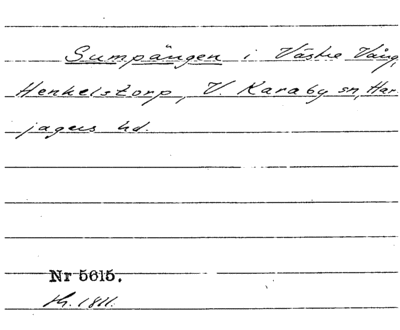 Sumpängen i Västra Vång,
Henkelstorp, V. Karaby sn, Har-
jagers hd.
Nr 5615.
1811.